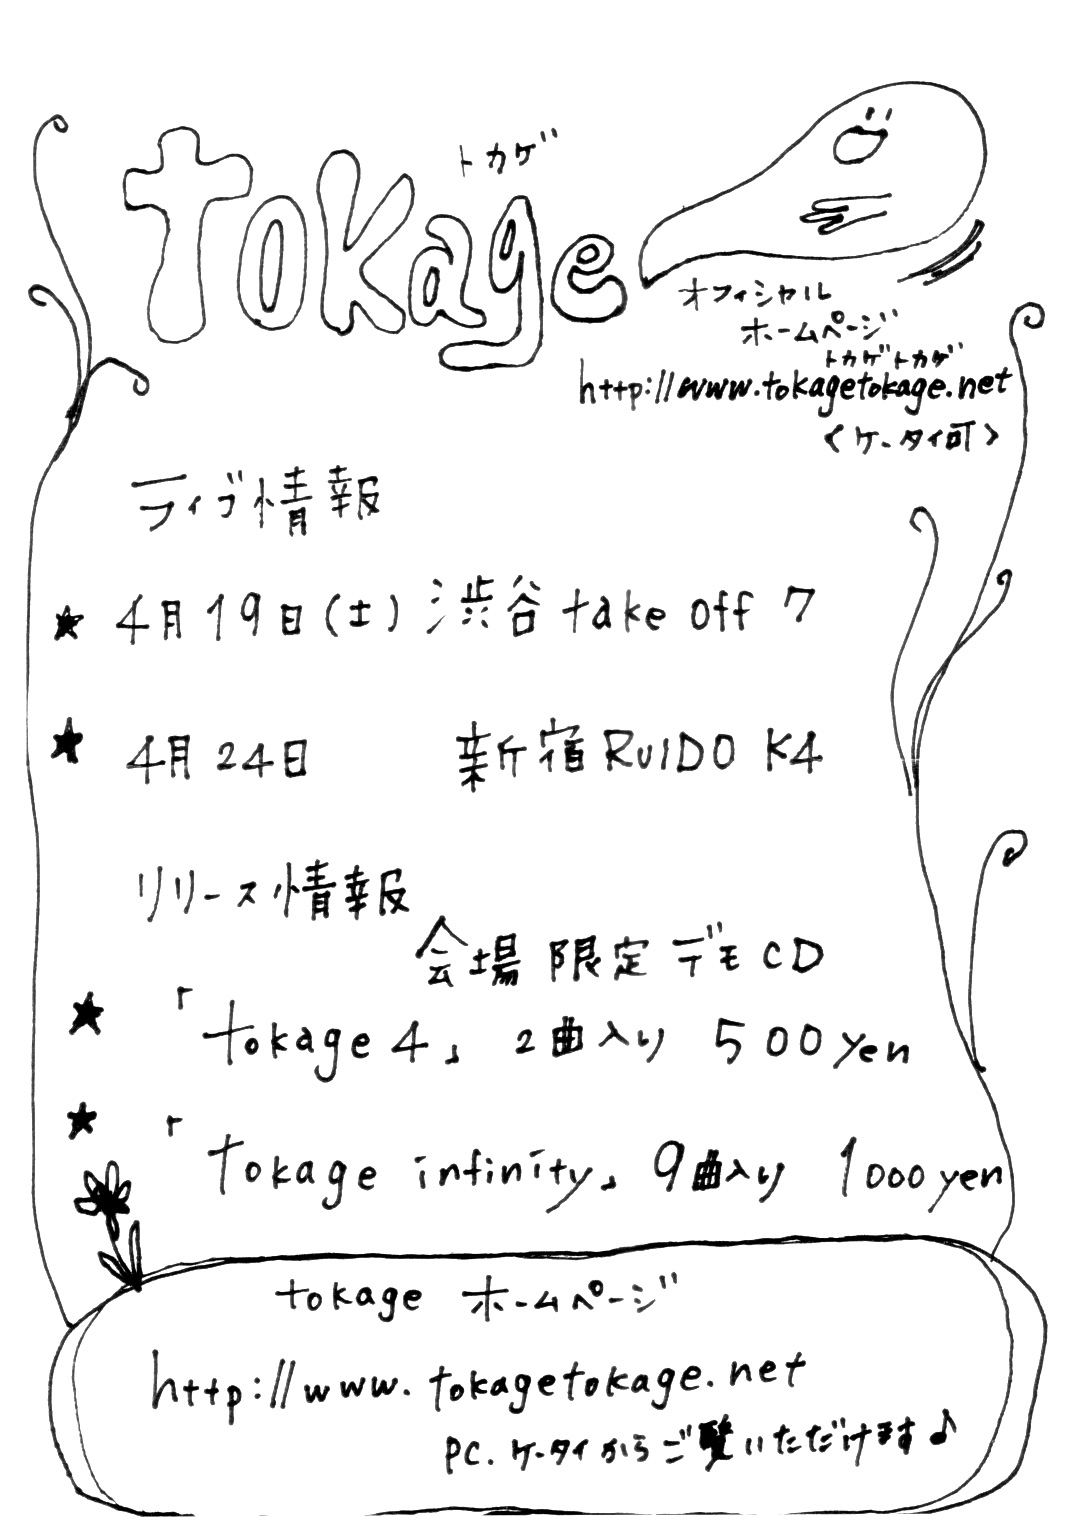 トカゲ
tokage
オフィシャル
ホームページ
トカゲトカゲ
http://www.tokagetokage.net
〈ケータイ可〉
ライブ情報
★ 4月19日(土) 渋谷 take off 7
★ 4月24日 新宿RUIDO K4
リリース情報
会場限定デモCD
★ 「tokage 4」 2曲入り 500yen
★ 「tokage infinity」 9曲入り 1000yen
tokage ホームページ
http://www.tokagetokage.net
PC.ケータイからご覧いただけます♪